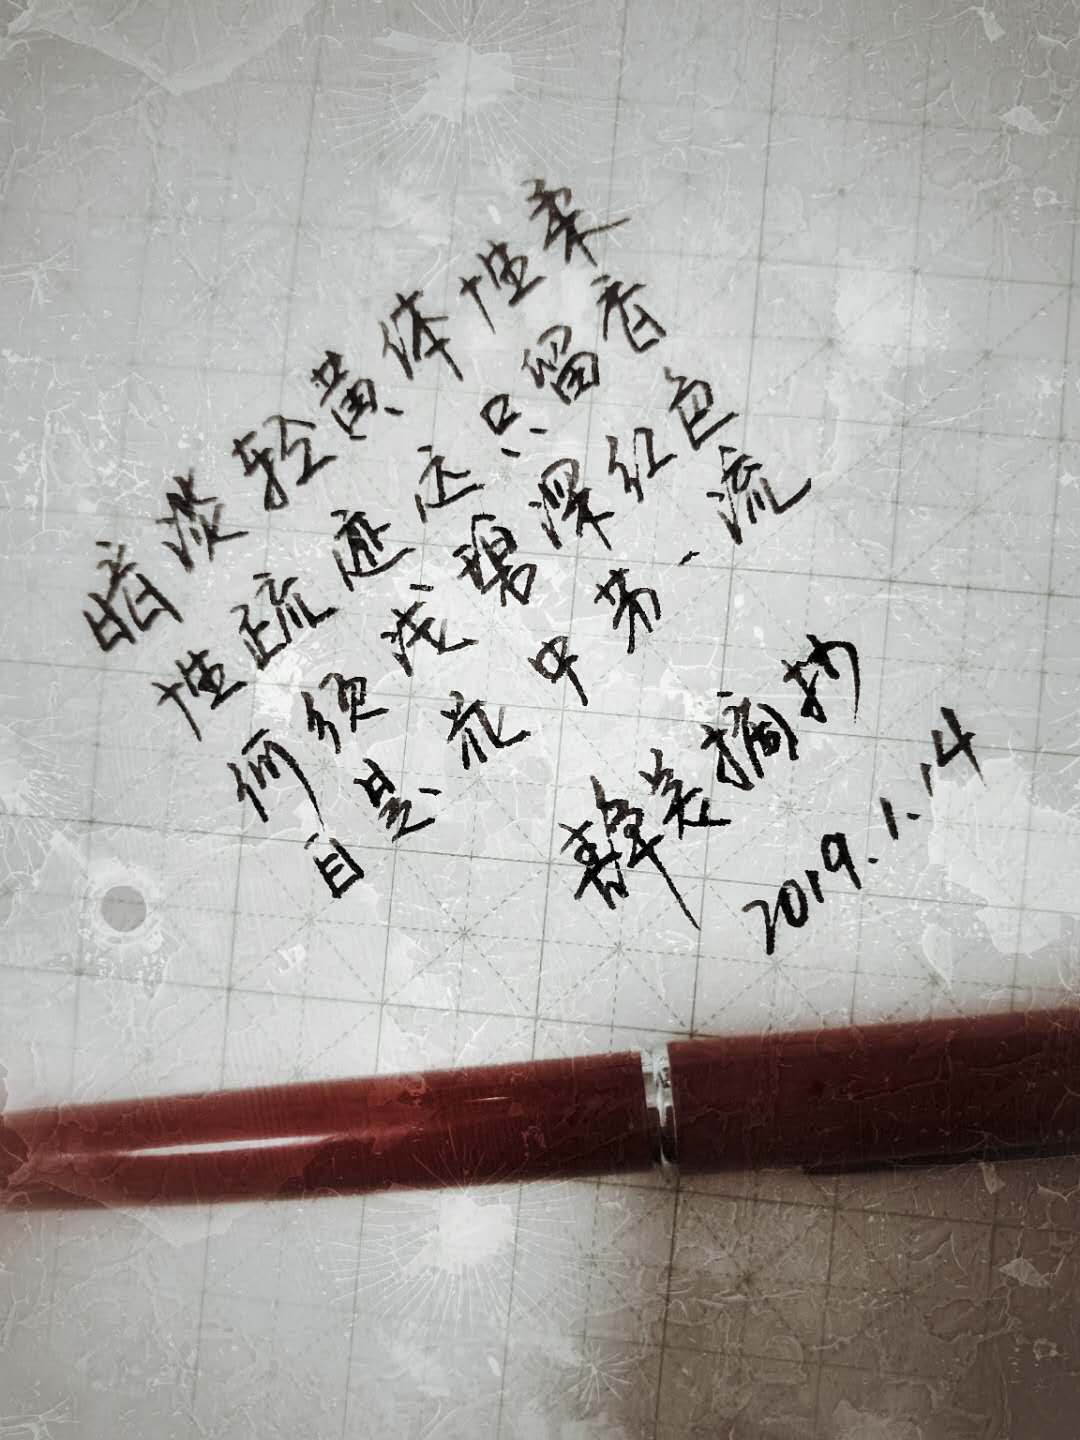 暗淡轻黄体性柔
性疏迹远只留香
何须浅碧深红色
自是花中第一流
摘抄
2019.1.14